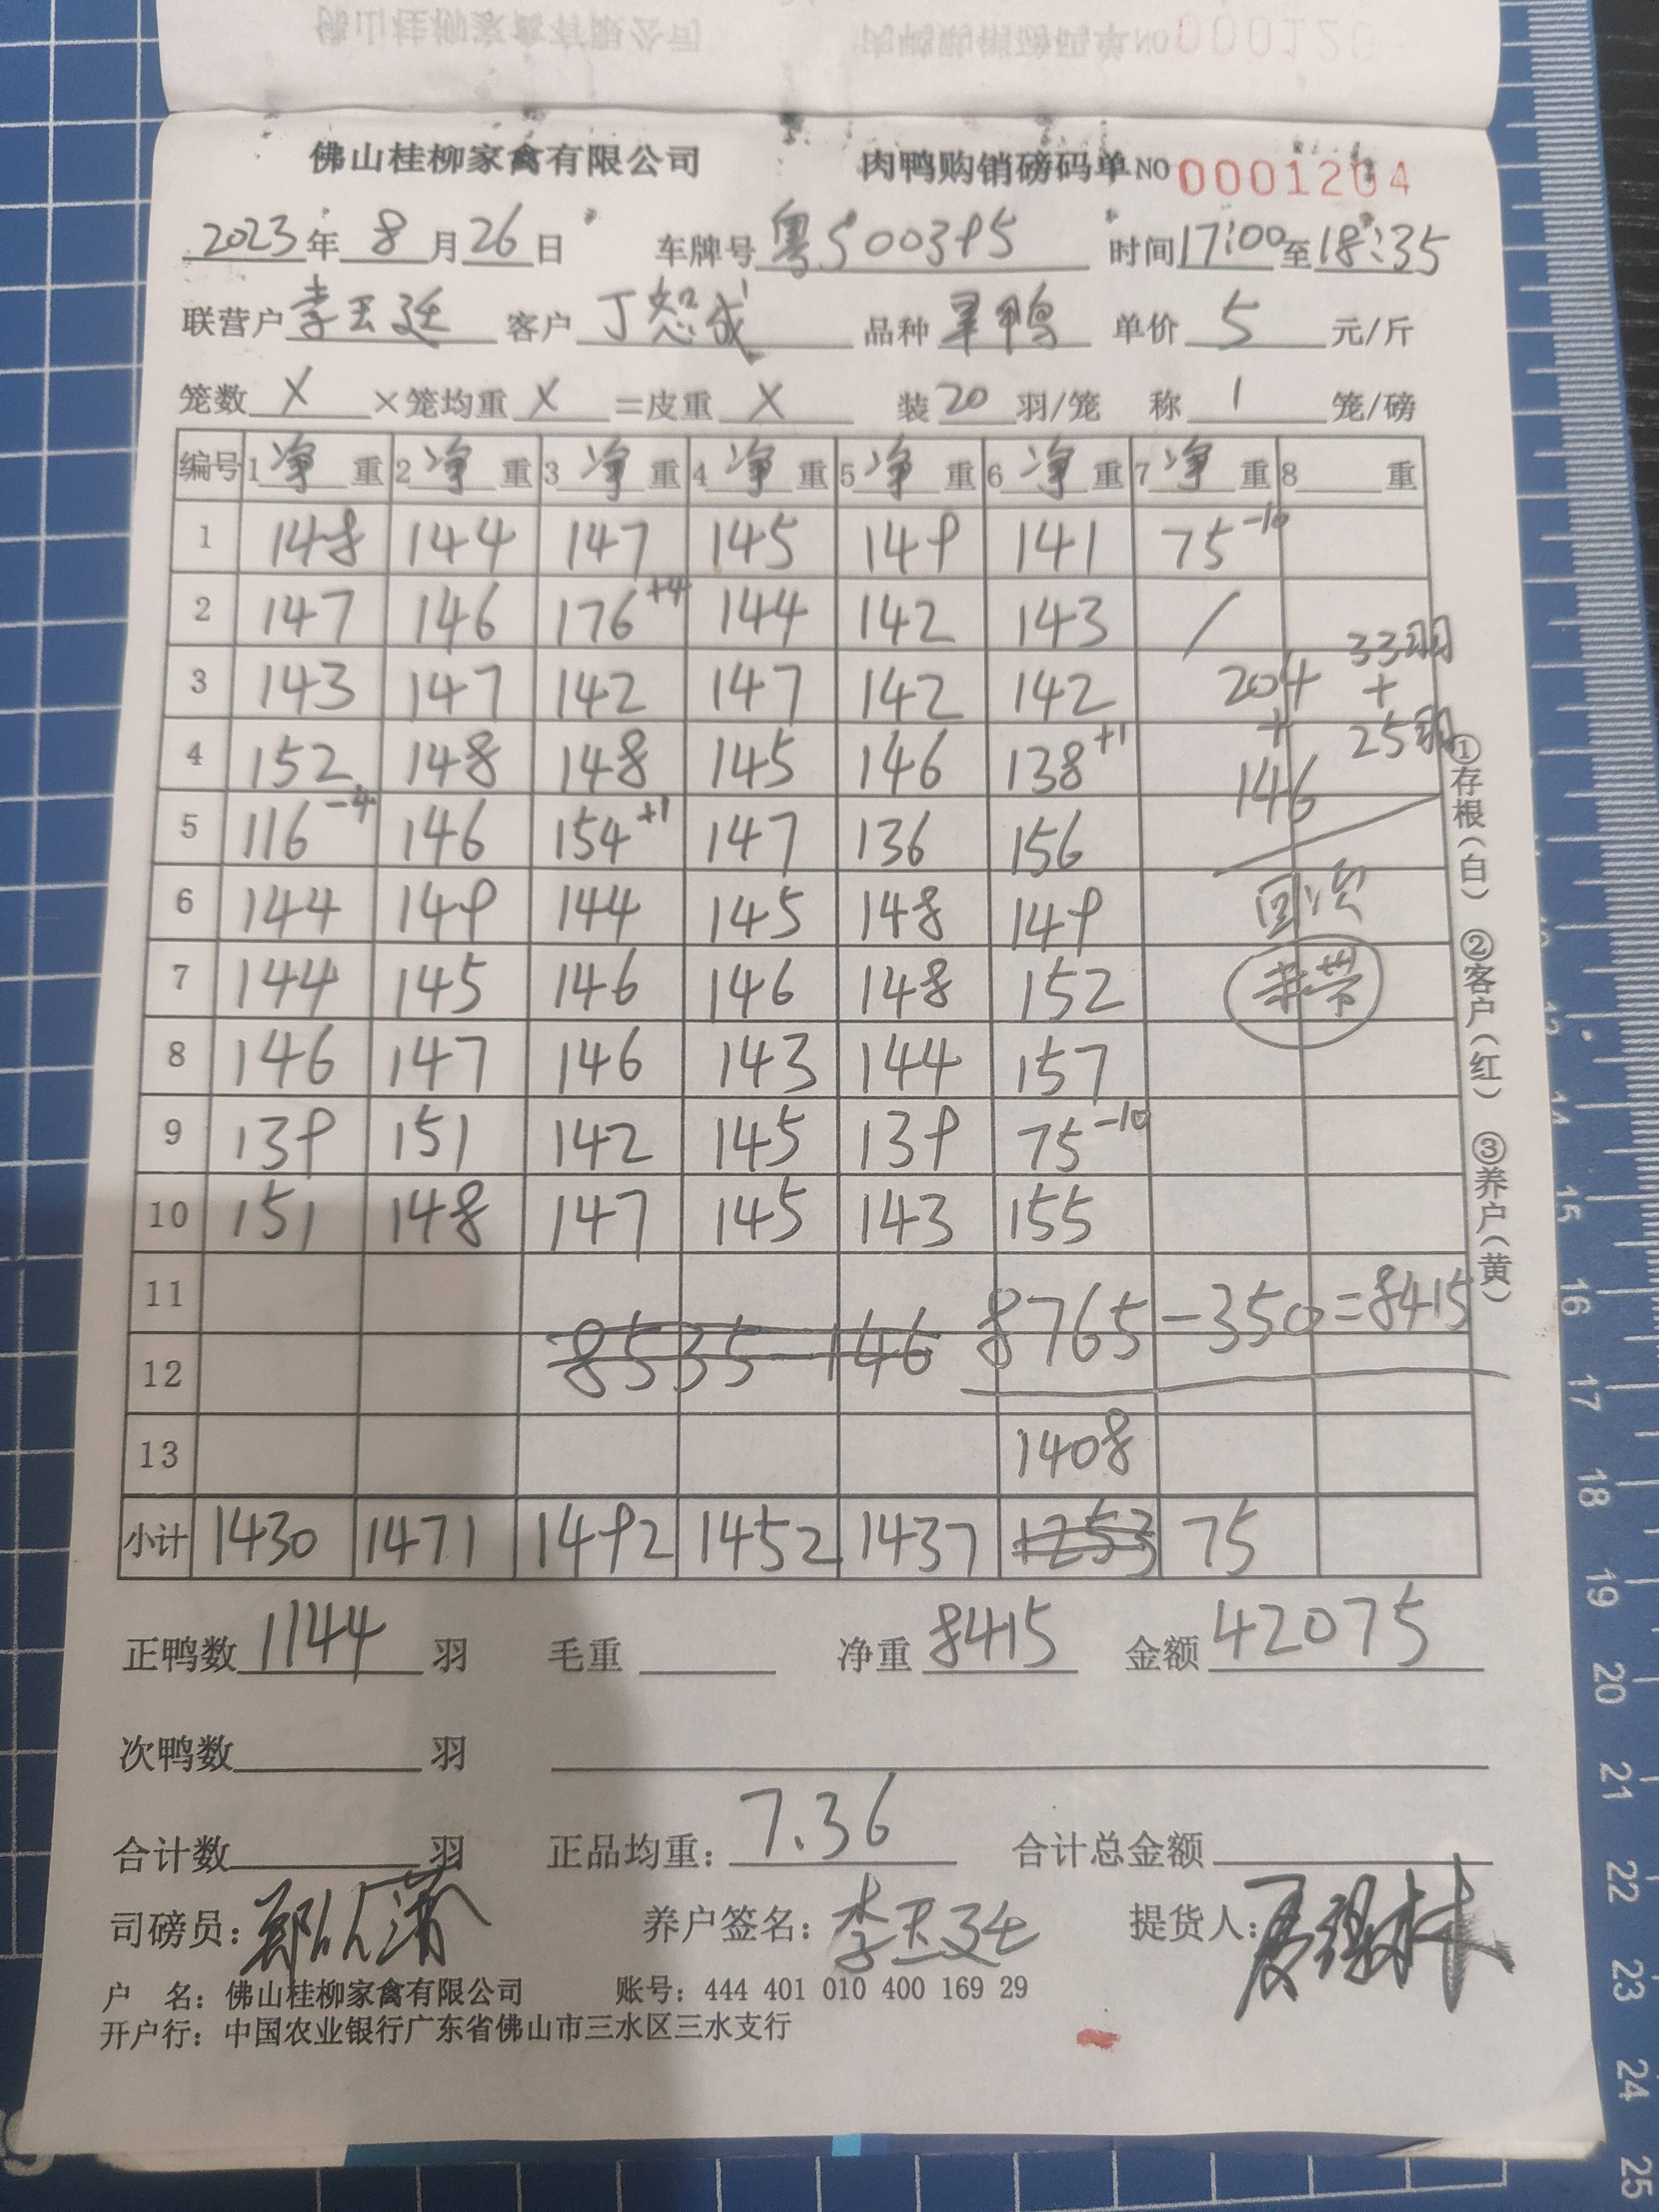 佛山桂柳家禽有限公司 肉鸭购销磅码单 NO 0001204
2023年 8月26日 车牌号 粤S00395 时间17:00至18:35
联营户 李玉廷 客户 丁恕成 品种 旱鸭 单价 5 元/斤
笼数 X ×笼均重 X =皮重 X 装 20 羽/笼 称 1 笼/磅
编号 1净重 2净重 3净重 4净重 5净重 6净重 7净重 8重
1 148 144 147 145 149 141 75-10
2 147 146 176+4 144 142 143 /
3 143 147 142 147 142 142 204 + 33羽
4 152 148 148 145 146 138+1 + 25羽
5 116-4 146 154+1 147 136 156 146
6 144 149 144 145 148 149 回次
7 144 145 146 146 148 152 未带
8 146 147 146 143 144 157
9 139 151 142 145 139 75-10
10 151 148 147 145 143 155
11
12 8535 146 8765-350=8415
13 1408
小计 1430 1471 1492 1452 1437 1253 75
正鸭数 1144 羽 毛重 净重 8415 金额 42075
次鸭数 羽
合计数 羽 正品均重: 7.36 合计总金额
司磅员: 养户签名: 李玉廷 提货人:
户 名: 佛山桂柳家禽有限公司 账号: 444 401 010 400 169 29
开户行: 中国农业银行广东省佛山市三水区三水支行
①存根(白) ②客户(红) ③养户(黄)